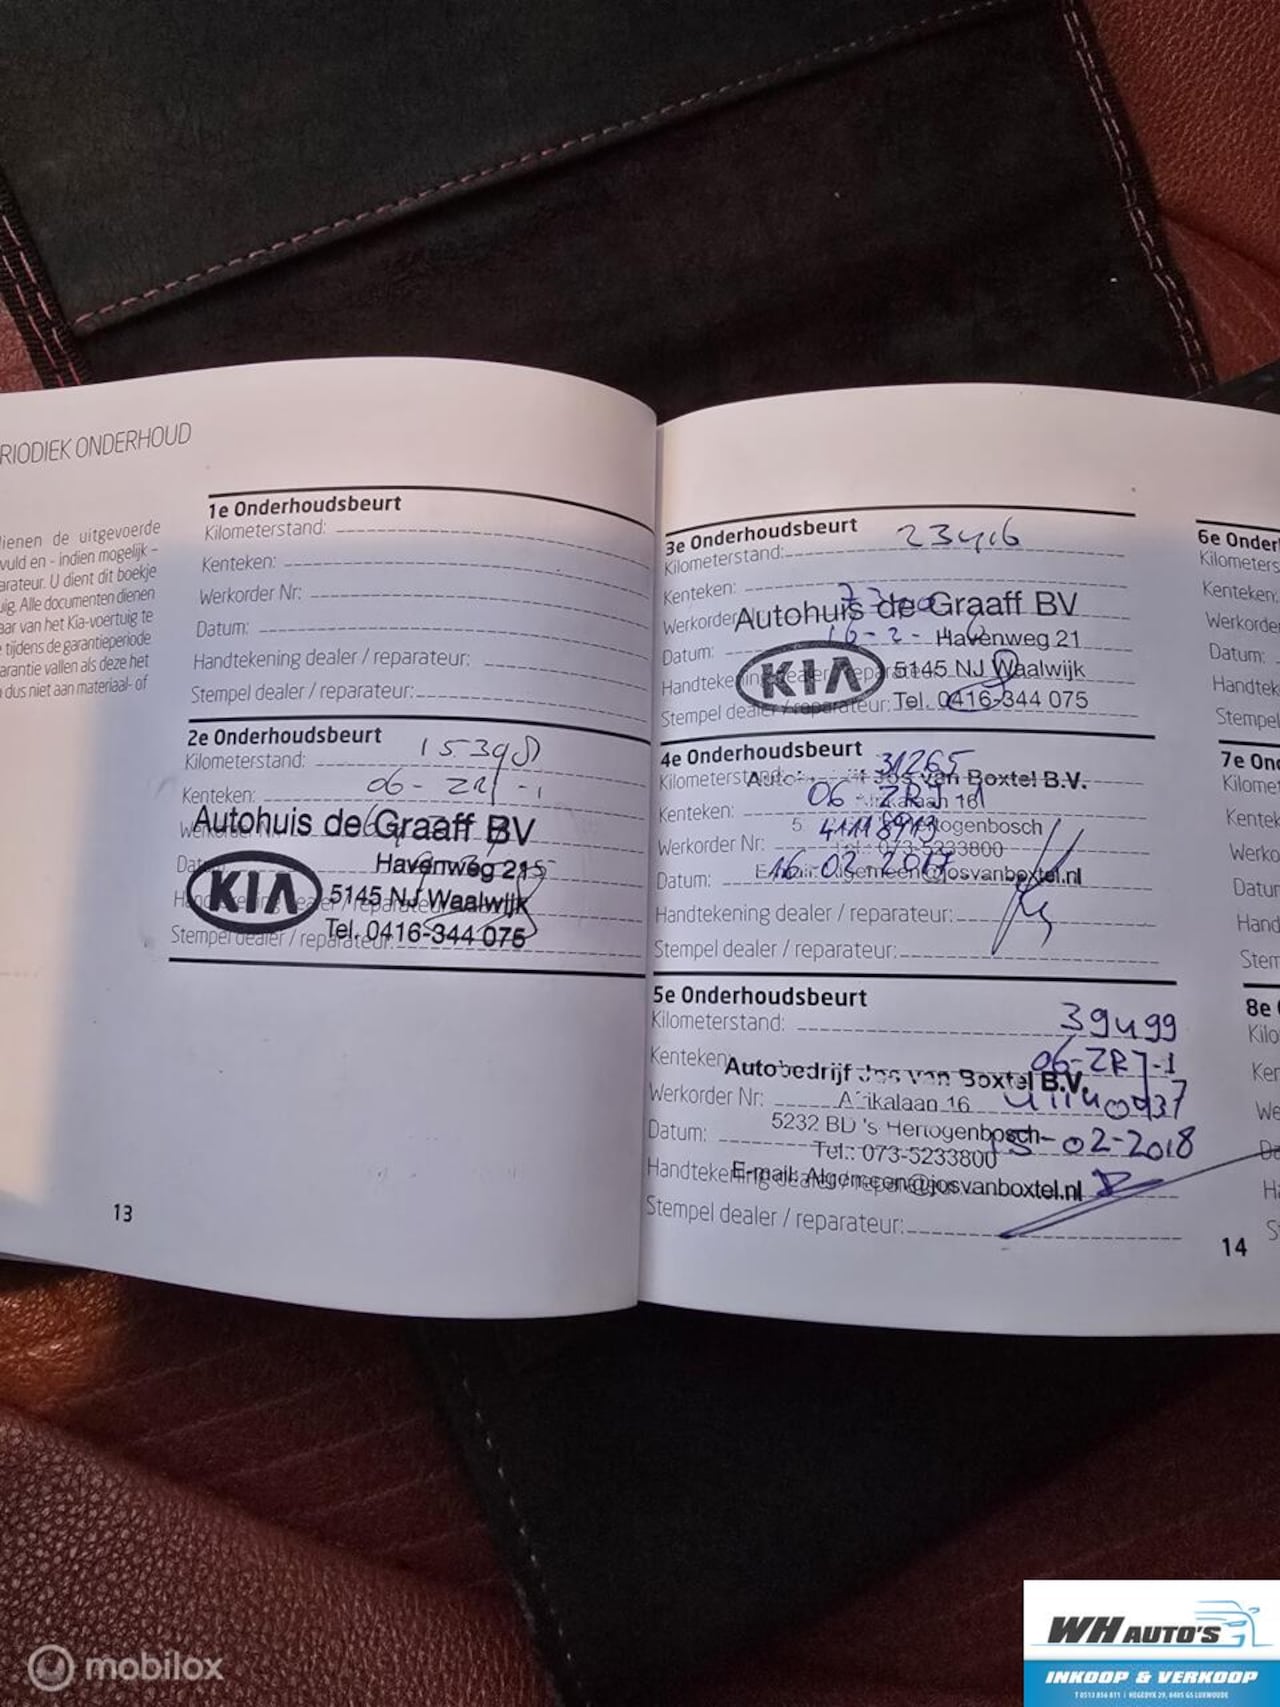 RIODIEK ONDERHOUD
dienen de uitgevoerde
vuld en - indien mogelijk -
arateur. U dient dit boekje
uig. Alle documenten dienen
aar van het Kia-voertuig te
tijdens de garantieperiode
arantie vallen als deze het
dus niet aan materiaal- of
1e Onderhoudsbeurt
Kilometerstand:
Kenteken:
Werkorder Nr:
Datum:
Handtekening dealer / reparateur:
Stempel dealer / reparateur:
2e Onderhoudsbeurt
Kilometerstand: 15398
Kenteken: 06-ZRJ-1
Autohuis de Graaff BV
Havenweg 21
KIA 5145 NJ Waalwijk
Tel. 0416-344 075
Stempel dealer / reparateur:
13
3e Onderhoudsbeurt
Kilometerstand: 23446
Kenteken:
Werkorder
Autohuis de Graaff BV
Datum: 16-2-
Havenweg 21
KIA 5145 NJ Waalwijk
Tel. 0416-344 075
Stempel dealer / reparateur:
4e Onderhoudsbeurt
Kilometerstand: 31265
Jos van Boxtel B.V.
Kenteken: 06-ZRJ-1
Werkorder Nr: 41118913
073-5233800
Datum: 16-02-2017
Algemeen@josvanboxtel.nl
Handtekening dealer / reparateur:
Stempel dealer / reparateur:
5e Onderhoudsbeurt
Kilometerstand: 39499
Kenteken: 06-ZRJ-1
Autobedrijf Jos van Boxtel B.V.
Werkorder Nr: 41140937
Afrikalaan 16
5232 BD 's Hertogenbosch
Datum: 15-02-2018
Tel.: 073-5233800
E-mail: Algemeen@josvanboxtel.nl
Stempel dealer / reparateur:
14
6e Onder
Kilometers
Kenteken:
Werkorder
Datum:
Handtek
Stempel
7e Ond
Kilomet
Kentek
Werko
Datur
Hand
Stem
8e
Kilo
Ken
We
Da
Ha
S
mobilox
WH AUTO'S
INKOOP & VERKOOP
T 0513 856 811 | HEGEDYK 29, 8405 GS LUXWOUDE